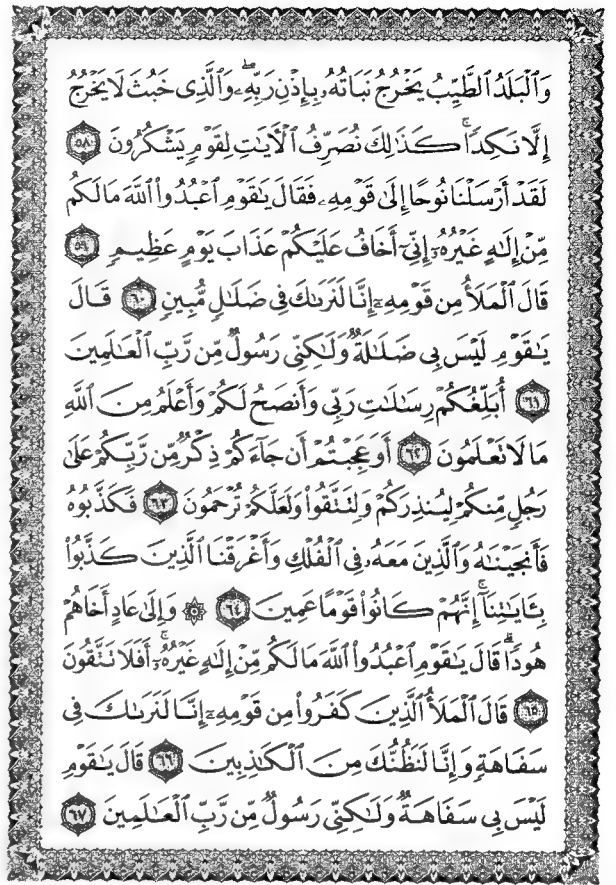 وَٱلْبَلَدُ ٱلطَّيِّبُ يَخْرُجُ نَبَاتُهُۥ بِإِذْنِ رَبِّهِۦۖ وَٱلَّذِى خَبُثَ لَا يَخْرُجُ
إِلَّا نَكِدًاۚ كَذَٰلِكَ نُصَرِّفُ ٱلْءَايَٰتِ لِقَوْمٍ يَشْكُرُونَ ٥٨
لَقَدْ أَرْسَلْنَا نُوحًا إِلَىٰ قَوْمِهِۦ فَقَالَ يَٰقَوْمِ ٱعْبُدُوا۟ ٱللَّهَ مَا لَكُم
مِّنْ إِلَٰهٍ غَيْرُهُۥٓ إِنِّىٓ أَخَافُ عَلَيْكُمْ عَذَابَ يَوْمٍ عَظِيمٍ ٥٩
قَالَ ٱلْمَلَأُ مِن قَوْمِهِۦٓ إِنَّا لَنَرَىٰكَ فِى ضَلَٰلٍ مُّبِينٍ ٦٠ قَالَ
يَٰقَوْمِ لَيْسَ بِى ضَلَٰلَةٌ وَلَٰكِنِّى رَسُولٌ مِّن رَّبِّ ٱلْعَٰلَمِينَ
٦١ أُبَلِّغُكُمْ رِسَٰلَٰتِ رَبِّى وَأَنصَحُ لَكُمْ وَأَعْلَمُ مِنَ ٱللَّهِ
مَا لَا تَعْلَمُونَ ٦٢ أَوَعَجِبْتُمْ أَن جَآءَكُمْ ذِكْرٌ مِّن رَّبِّكُمْ عَلَىٰ
رَجُلٍ مِّنكُمْ لِيُنذِرَكُمْ وَلِتَتَّقُوا۟ وَلَعَلَّكُمْ تُرْحَمُونَ ٦٣ فَكَذَّبُوهُ
فَأَنجَيْنَٰهُ وَٱلَّذِينَ مَعَهُۥ فِى ٱلْفُلْكِ وَأَغْرَقْنَا ٱلَّذِينَ كَذَّبُوا۟
بِـَٔايَٰتِنَآۚ إِنَّهُمْ كَانُوا۟ قَوْمًا عَمِينَ ٦٤ ۞ وَإِلَىٰ عَادٍ أَخَاهُمْ
هُودًاۗ قَالَ يَٰقَوْمِ ٱعْبُدُوا۟ ٱللَّهَ مَا لَكُم مِّنْ إِلَٰهٍ غَيْرُهُۥٓۚ أَفَلَا تَتَّقُونَ
٦٥ قَالَ ٱلْمَلَأُ ٱلَّذِينَ كَفَرُوا۟ مِن قَوْمِهِۦٓ إِنَّا لَنَرَىٰكَ فِى
سَفَاهَةٍ وَإِنَّا لَنَظُنُّكَ مِنَ ٱلْكَٰذِبِينَ ٦٦ قَالَ يَٰقَوْمِ
لَيْسَ بِى سَفَاهَةٌ وَلَٰكِنِّى رَسُولٌ مِّن رَّبِّ ٱلْعَٰلَمِينَ ٦٧